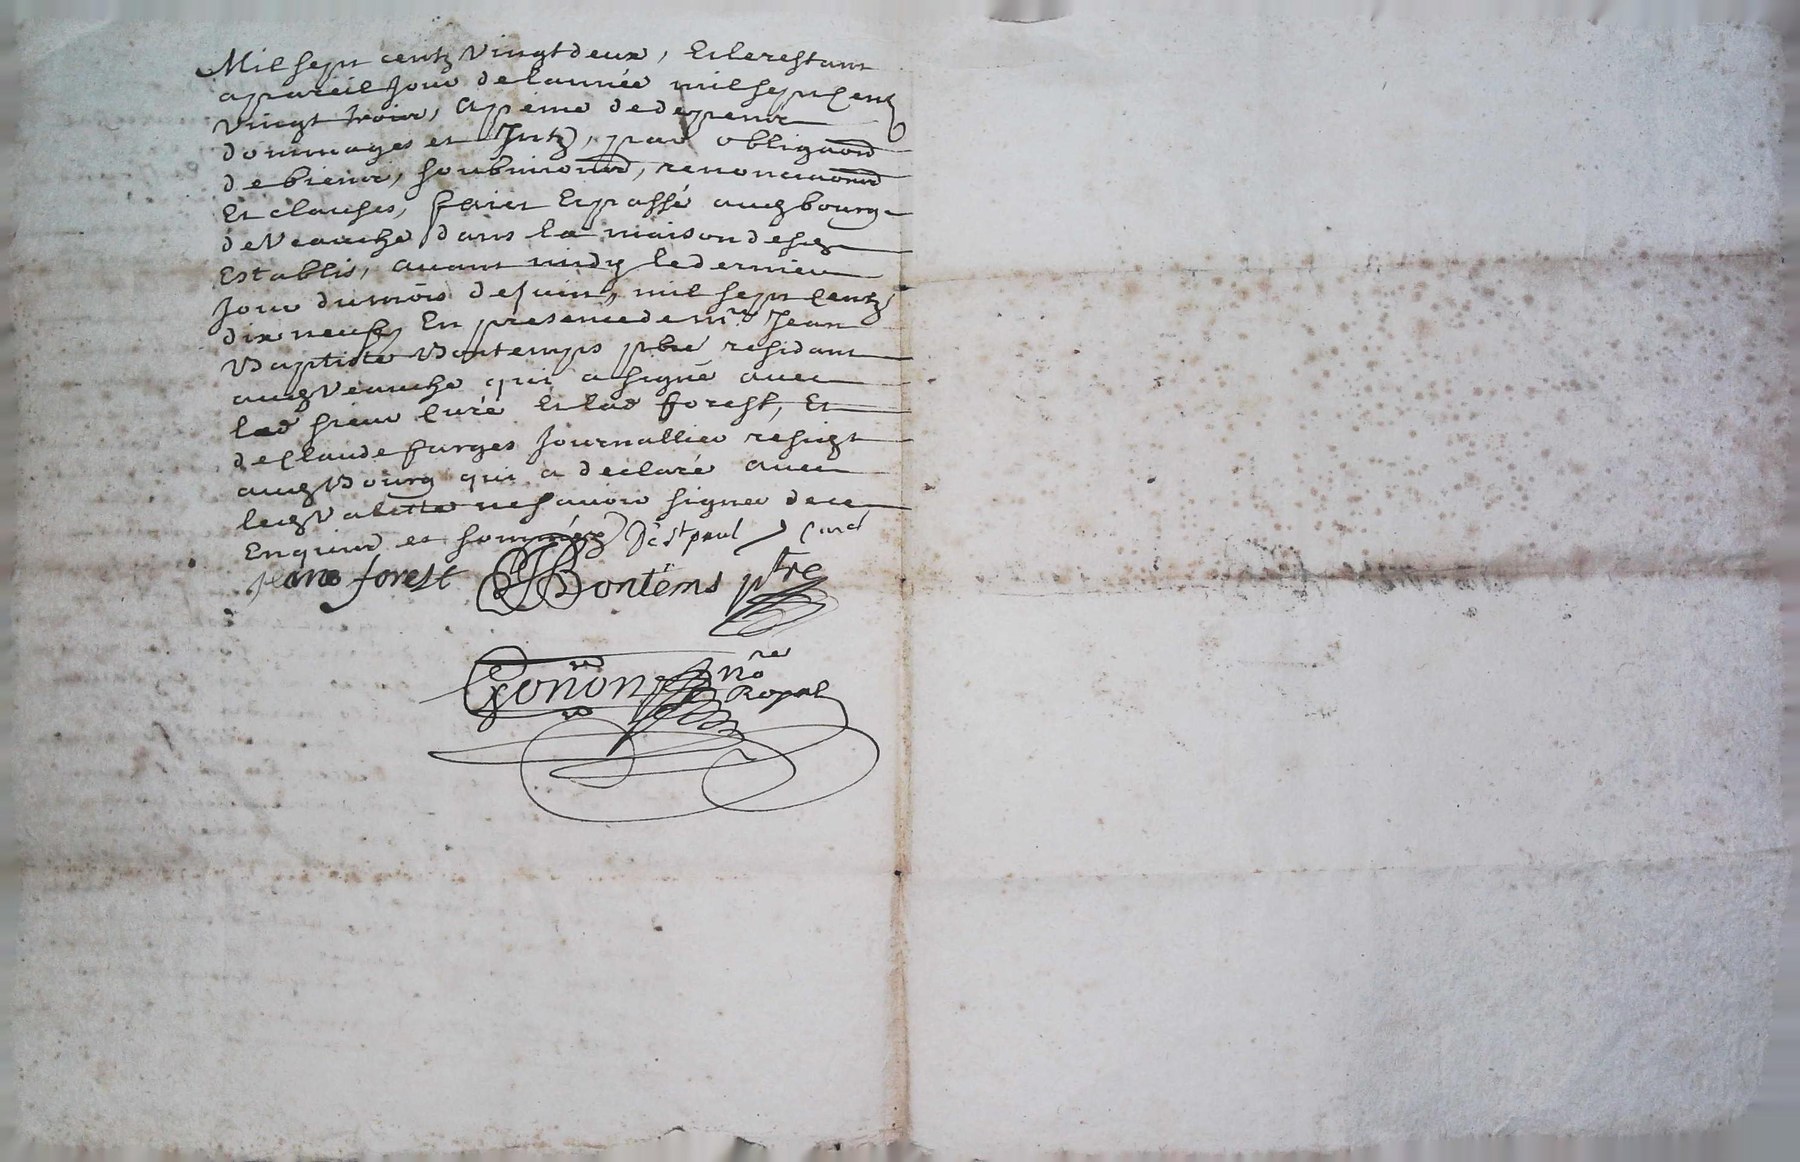 Mil sept centz vingt deux, Et le restant
a pareil Jour de lannée mil sept Centz
vingt trois, A peine de depens
dommages et Intz, par obligaôns
de biens, soubmiõns, renonciaôns
Et clauses, faict Et passé audz bourg
de Veauche dans la maison desdz
Establis, avant midy le dernier
Jour du mois de juin, mil sept Centz
dix neuf, En presence de mre Jean
Baptiste Bontemps pbre residant
audz Veauche qui a signé avec
lad sieur Curé Et lad forest, Et
de Claude farges Journallier residt
audz Bourg qui a declaré avec
ledz valette ne scavoir signer de ce
Enquis et sommés De St paul, Curé
jeane forest JB Bontëms ptre
Gonon nore
Royal